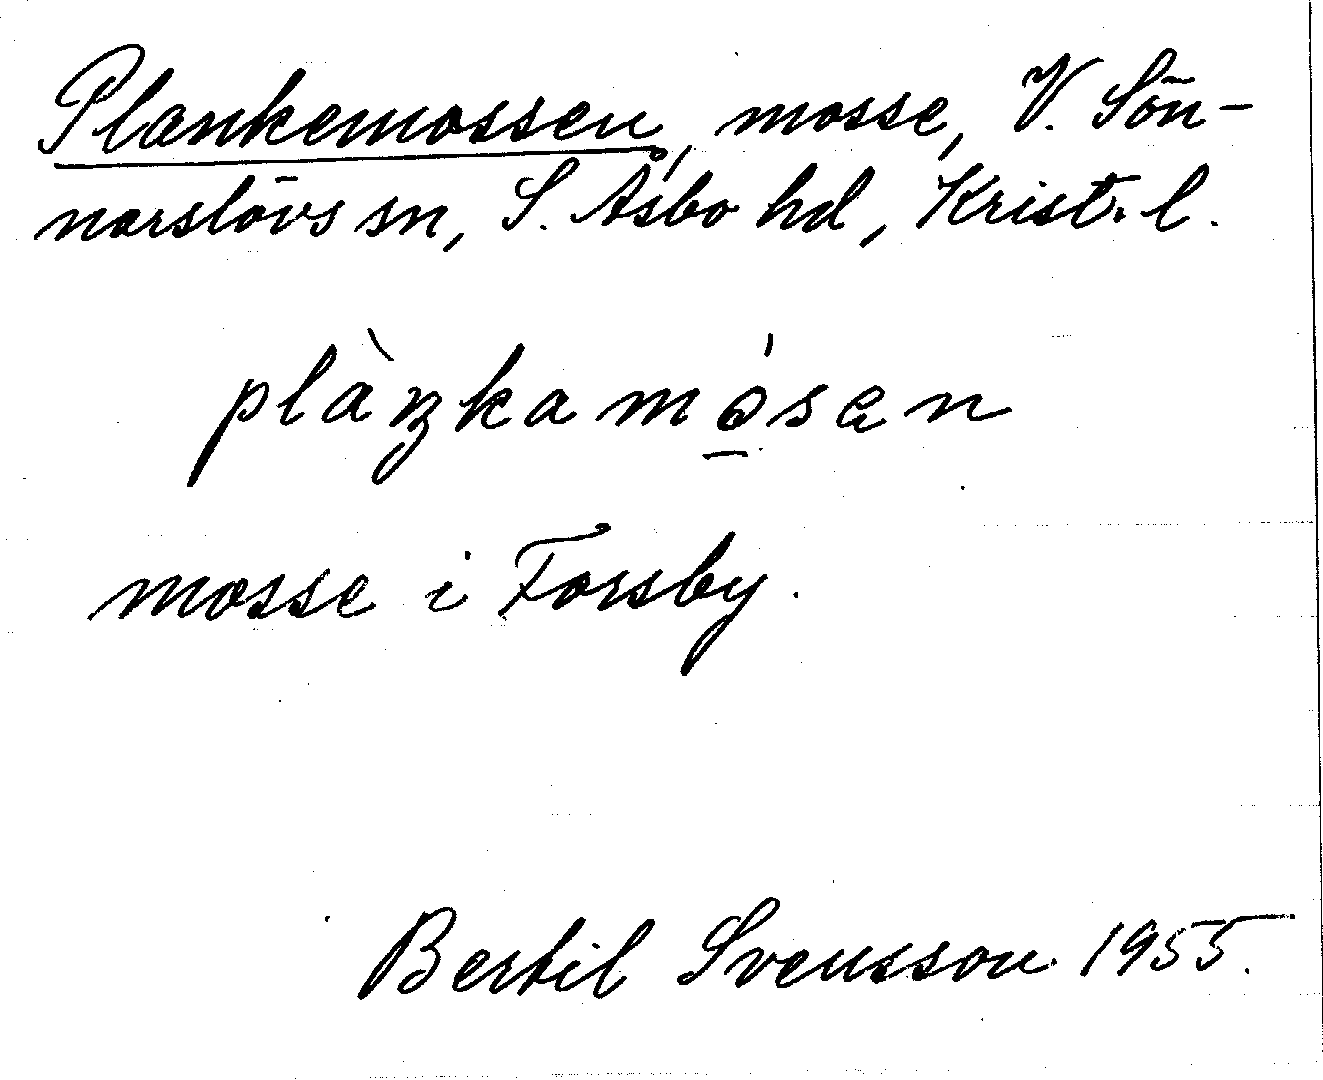 Plankemossen, mosse, V. Sön-
narslövs sn, S. Åsbo hd, Krist. l.
plàŋkamósən
mosse i Forsby.
Bertil Svensson 1955.